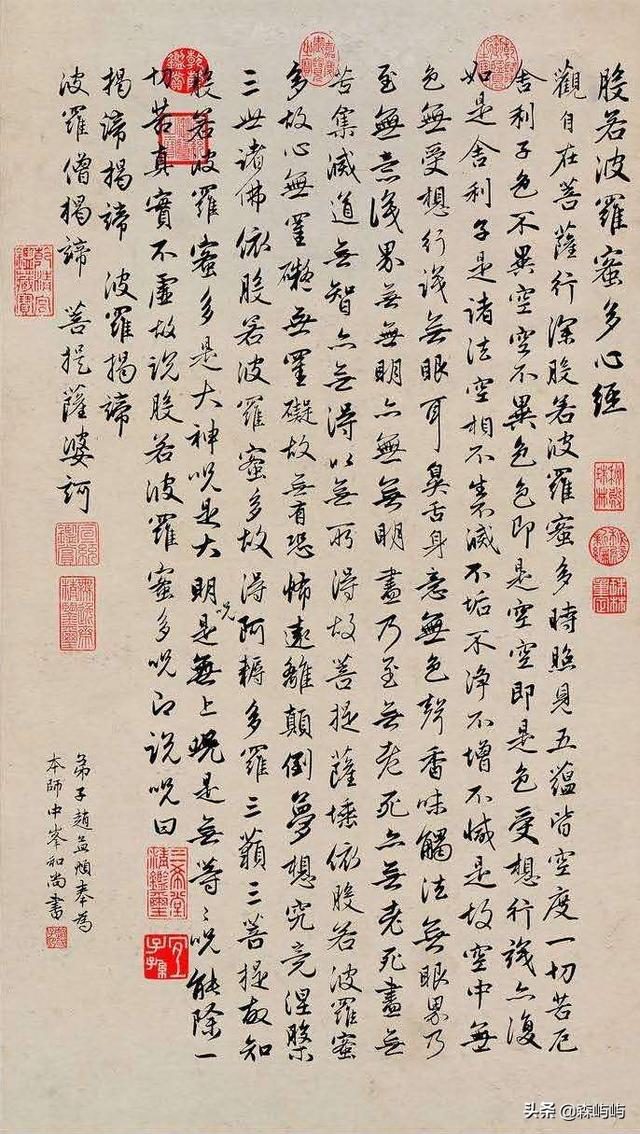 般若波羅蜜多心經
觀自在菩薩行深般若波羅蜜多時照見五蘊皆空度一切苦厄
舍利子色不異空空不異色色即是空空即是色受想行識亦復
如是舍利子是諸法空相不生不滅不垢不淨不增不減是故空中無
色無受想行識無眼耳鼻舌身意無色聲香味觸法無眼界乃
至無意識界無無明亦無無明盡乃至無老死亦無老死盡無
苦集滅道無智亦無得以無所得故菩提薩埵依般若波羅蜜
多故心無罣礙無罣礙故無有恐怖遠離顛倒夢想究竟涅槃
三世諸佛依般若波羅蜜多故得阿耨多羅三藐三菩提故知
般若波羅蜜多是大神咒是大明咒是無上咒是無等〻咒能除一
切苦真實不虛故說般若波羅蜜多咒即說咒曰
揭諦揭諦 波羅揭諦
波羅僧揭諦 菩提薩婆訶
弟子趙孟頫奉為
本師中峯和尚書
乾隆鑑賞
乾清宮鑑藏寶
宣統鑑賞
三希堂精鑑璽
宜子孫
头条 @森屿屿